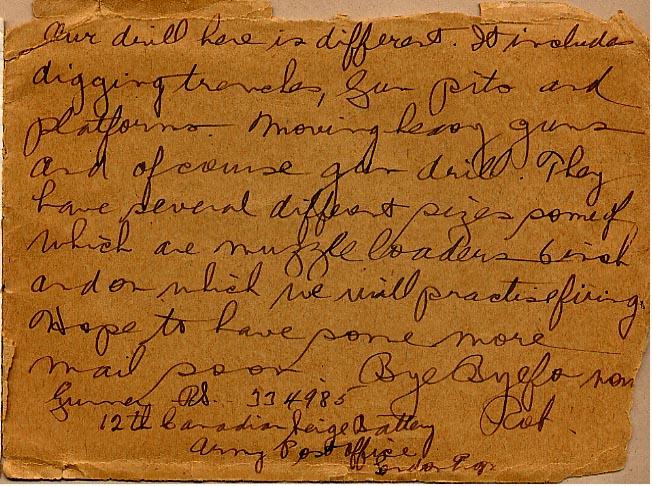 Our drill here is different. It includes
digging trenches, Gun pits and
platforms Moving heavy guns
and of course gun drill. They
have several different sizes some of
which are muzzle loaders 6 inch
and on which we will practise firing.
Hope to have some more
mail soon. Bye Bye fo now
Gunner 334985
12th Canadian Seige Battery Rob.
Army Post office
London Eng.